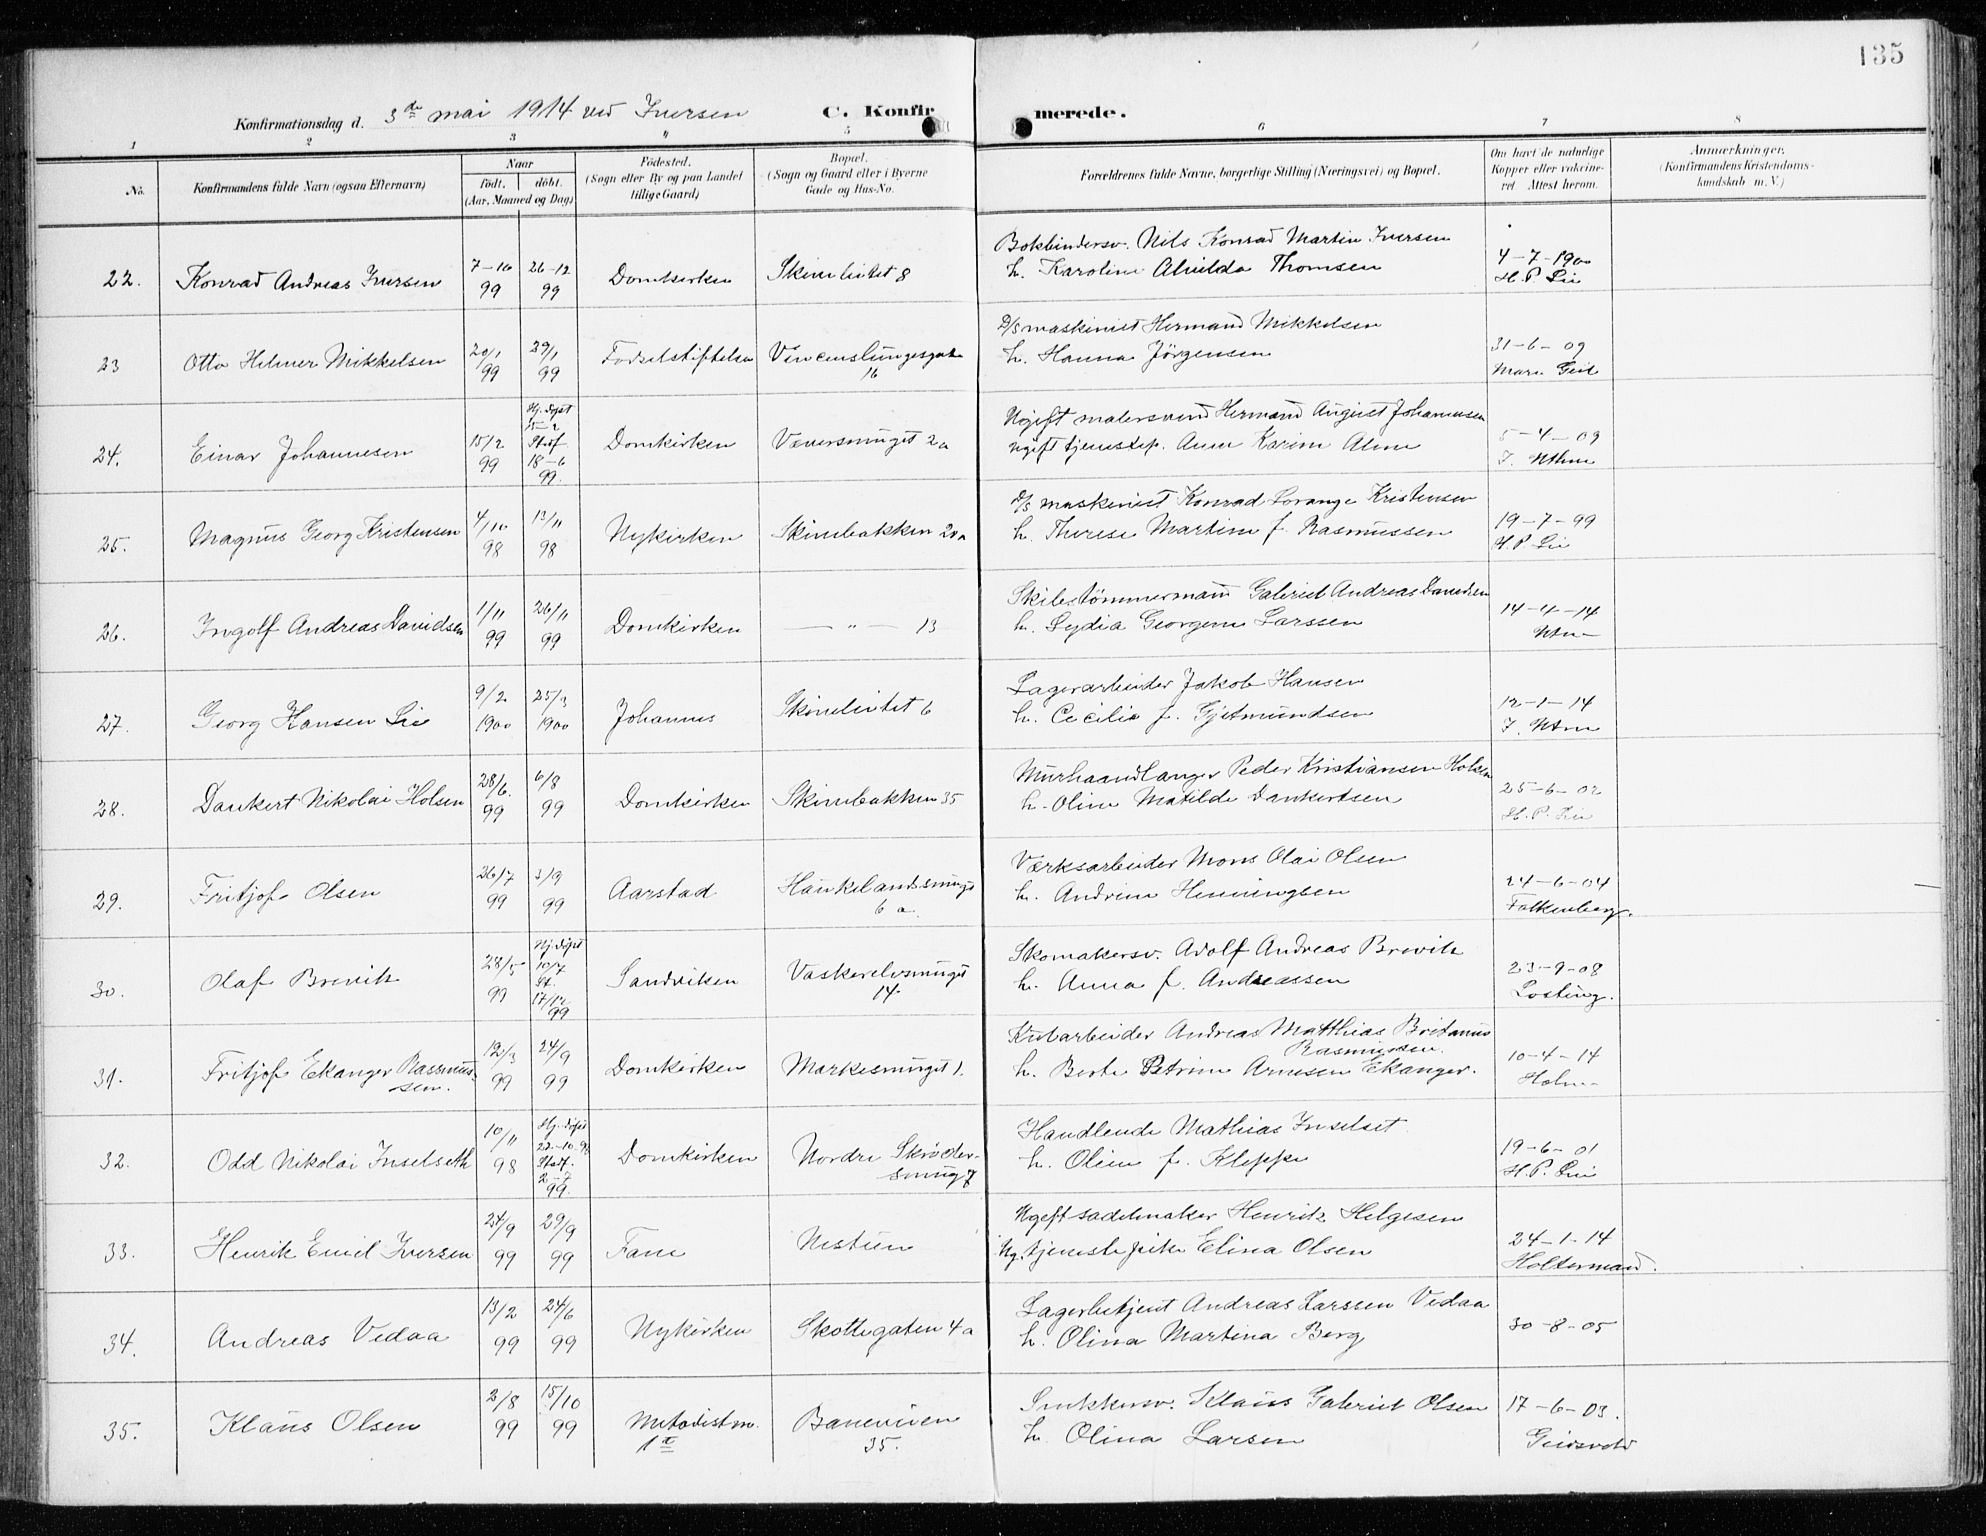 135
Konfirmationsdag d. 3de mai 1914 ved Iversen
C. Konfirmerede.
1 2 3 4 5 6 7 8
No.
Konfirmandens fulde Navn (ogsaa Efternavn)
Naar
født. døbt.
(Aar, Maaned og Dag)
Fødested.
(Sogn eller By og paa Landet
tillige Gaard)
Bopæl.
(Sogn og Gaard eller i Byerne
Gade og Hus-No.
Forældrenes fulde Navne, borgerlige Stilling (Næringsvei) og Bopæl.
Om havt de naturlige
Kopper eller vakcine-
ret Attest herom.
Anmærkninger.
(Konfirmandens Kristendoms-
kundskab m. V.)
22. Konrad Andreas Iversen 7-10 99 26-12 99 Domkirken Skivebakken 8
Bokbindersv. Nils Konrad Martin Iversen
h. Karoline Alvilda Thomsen
4-7-1900
H. P. Lie
23 Otto Hilmer Mikkelsen 20/1 99 29/1 99 Fødselstiftelsen Vincenslungesgate 16
D/s maskinist Hermand Mikkelsen
h. Hanna Jörgensen
31-6-09
24. Einar Johannesen 15/2 99 Hj. døpt 15-2 Stadf. 18-6 99. Domkirken Væversmuget 2a
Ugift malersvend Hermand August Johannesen
ugift tjenestep. Anne Karine
5-4-09
25. Magnus Georg Kristensen 4/10 98 13/11 98 Nykirken Skivebakken 20a
D/s maskinist Konrad Lorange Kristensen
h. Therese Martine f. Rasmussen
19-7-99
H. P. Lie
26. Ingolf Andreas Davidsen 1/11 99 26/11 99 Domkirken — " — 13
Skibstömmermann Gabriel Andreas Davidsen
h. Lydia Georgine Larssen
14-4-14
27. Georg Hansen Lie 9/2 1900 25/3 1900 Johannes 6
Lagerarbeider Jakob Hansen
h. Cecilie f. Gjetmundsen
12-1-14
28. Dankert Nikolai Holsen 28/6. 99 6/8 99 Domkirken Skivebakken 35
Murhaandlanger Peder Kristiansen Holsen
h. Oline Matilde Dankertsen
25-6-02
H. P. Lie
29. Fritjof Olsen 26/7 99 3/9 99 Aarstad Haukelandssmuget 6 a.
Værksarbeider Mons Olai Olsen
h. Andrine Henningsen
24-6-04
Falkenberg.
30. Olaf Brevik 28/5 99 Hj. døpt 10/7 St. 17/12 99 Sandviken Vaskerelvsmuget 14.
Skomakersv. Adolf Andreas Brevik
h. Anna f. Andreassen
23-9-08
Losting.
31. Fritjof Ekanger Rasmussen. 12/3 99 24/9 99 Domkirken Markesmuget 1.
Andreas Matthias Britanus
Rasmussen.
h. Berte Petrine Arnesen Ekanger.
10-4-14
Holm
32. Odd Nikolai Inselseth 10/11 98 Hj. døpt 22-10-98 Stadf. 2-7 99. Domkirken Nordre Skrödersmug 7
Handlende Mathias Inselset
h. Oline f. Kleppe
19-6-01
H. P. Lie
33. Henrik Emil Iversen 24/9 99 29/9 99 Fane Nestun
Ugift sadelmaker Henrik Helgesen
Ug. tjenestepike Elina Olsen
24-1-14
Holtermand.
34. Andreas Vedaa 13/2 99 24/6 99 Nykirken Skottegaten 4a
Lagerbetjent Andreas Larssen Vedaa
h. Olina Martina Berg
30-8-05
35. Klaus Olsen 2/8 99 15/10 99 Metodistm. 1ste Baneveien 35.
Snekkersv. Klaus Gabriel Olsen
h. Olina Larsen
17-6-03.